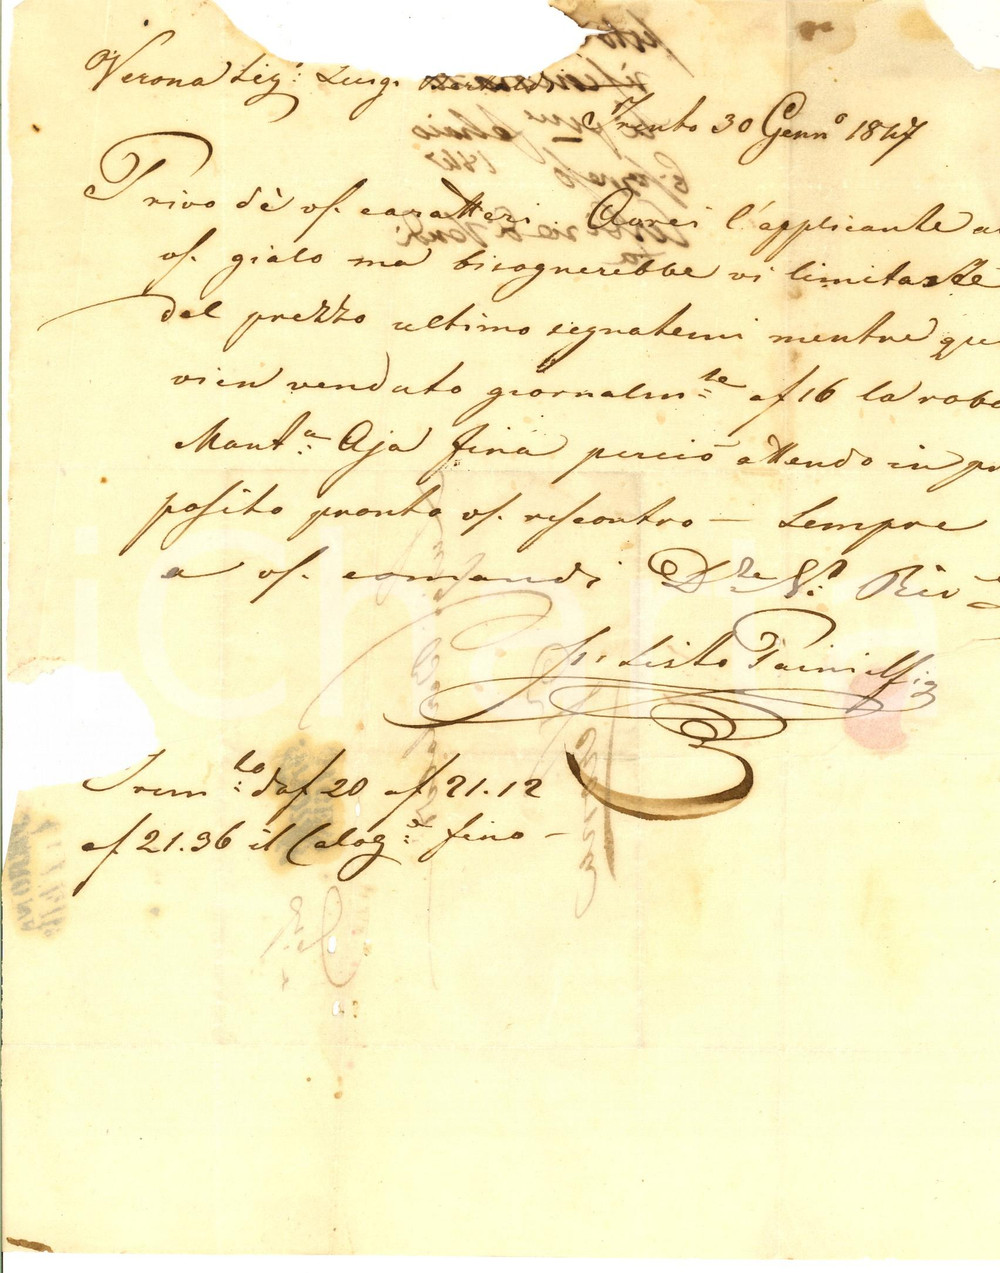 Verona Sig.r Luigi
Trento 30 Genn.o 1847
Privo dè vs. caratteri. Avrei l'applicante a
vs. gialo ma bisognerebbe vi limitaste
del prezzo ultimo segnatemi mentre que
vien venduto giornalm.te a f 16 la roba
Mant.a Aja fina perciò attendo in pro
posito pronto vs. riscontro — Sempre
a vs. comandi
p. Sisto
Frum.to da f 20 a f 21.12
a f 21.36 il Calog.e fino —
iCharta